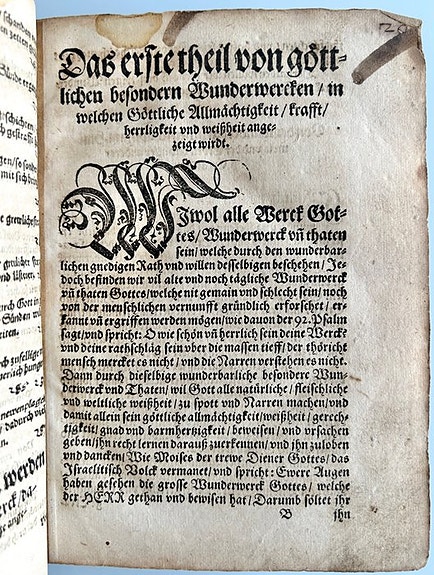 20
Das erste theil von gött-
lichen besondern Wunderwercken / in
welchen Göttliche Allmächtigkeit / krafft /
herrligkeit vnd weißheit ange-
zeigt wirdt.
WJwol alle Werck Got-
tes / Wunderwerck vñ thaten
sein / welche durch den wunderbar-
lichen gnedigen Rath vnd willen desselbigen beschehen / Je-
doch befinden wir vil alte vnd noch tägliche Wunderwerck
vñ thaten Gottes / welche nit gemain vnd schlecht sein / noch
von der menschlichen vernunfft gründlich erforschet / er-
kannt vñ ergriffen werden mögen / wie dauon der 92. Psalm
sagt / vnd spricht: O wie schön vñ herrlich sein deine Werck /
vnd deine rathschläg sein vber die massen tieff / der thöricht
mensch mercket es nicht / vnd die Narren verstehen es nicht.
Dann durch dieselbige wunderbarliche besondere Wun-
derwerck vnd Thaten / wil Gott alle natürliche / fleischliche
vnd weltliche weißheit / zu spott vnd Narren machen / vnd
damit allein sein göttliche allmächtigkeit / weißheit / gerech-
tigkeit / gnad vnd barmhertzigkeit / beweisen / vnd vrsachen
geben / jhn recht lernen darauß zuerkennen / vnd jhn zuloben
vnd dancken / Wie Moises der trewe Diener Gottes / das
Israelitisch Volck vermanet / vnd spricht: Ewere Augen
haben gesehen die grosse Wunderwerck Gottes / welche
der HERR gethan vnd bewisen hat / Darumb söltet jhr
B jhn